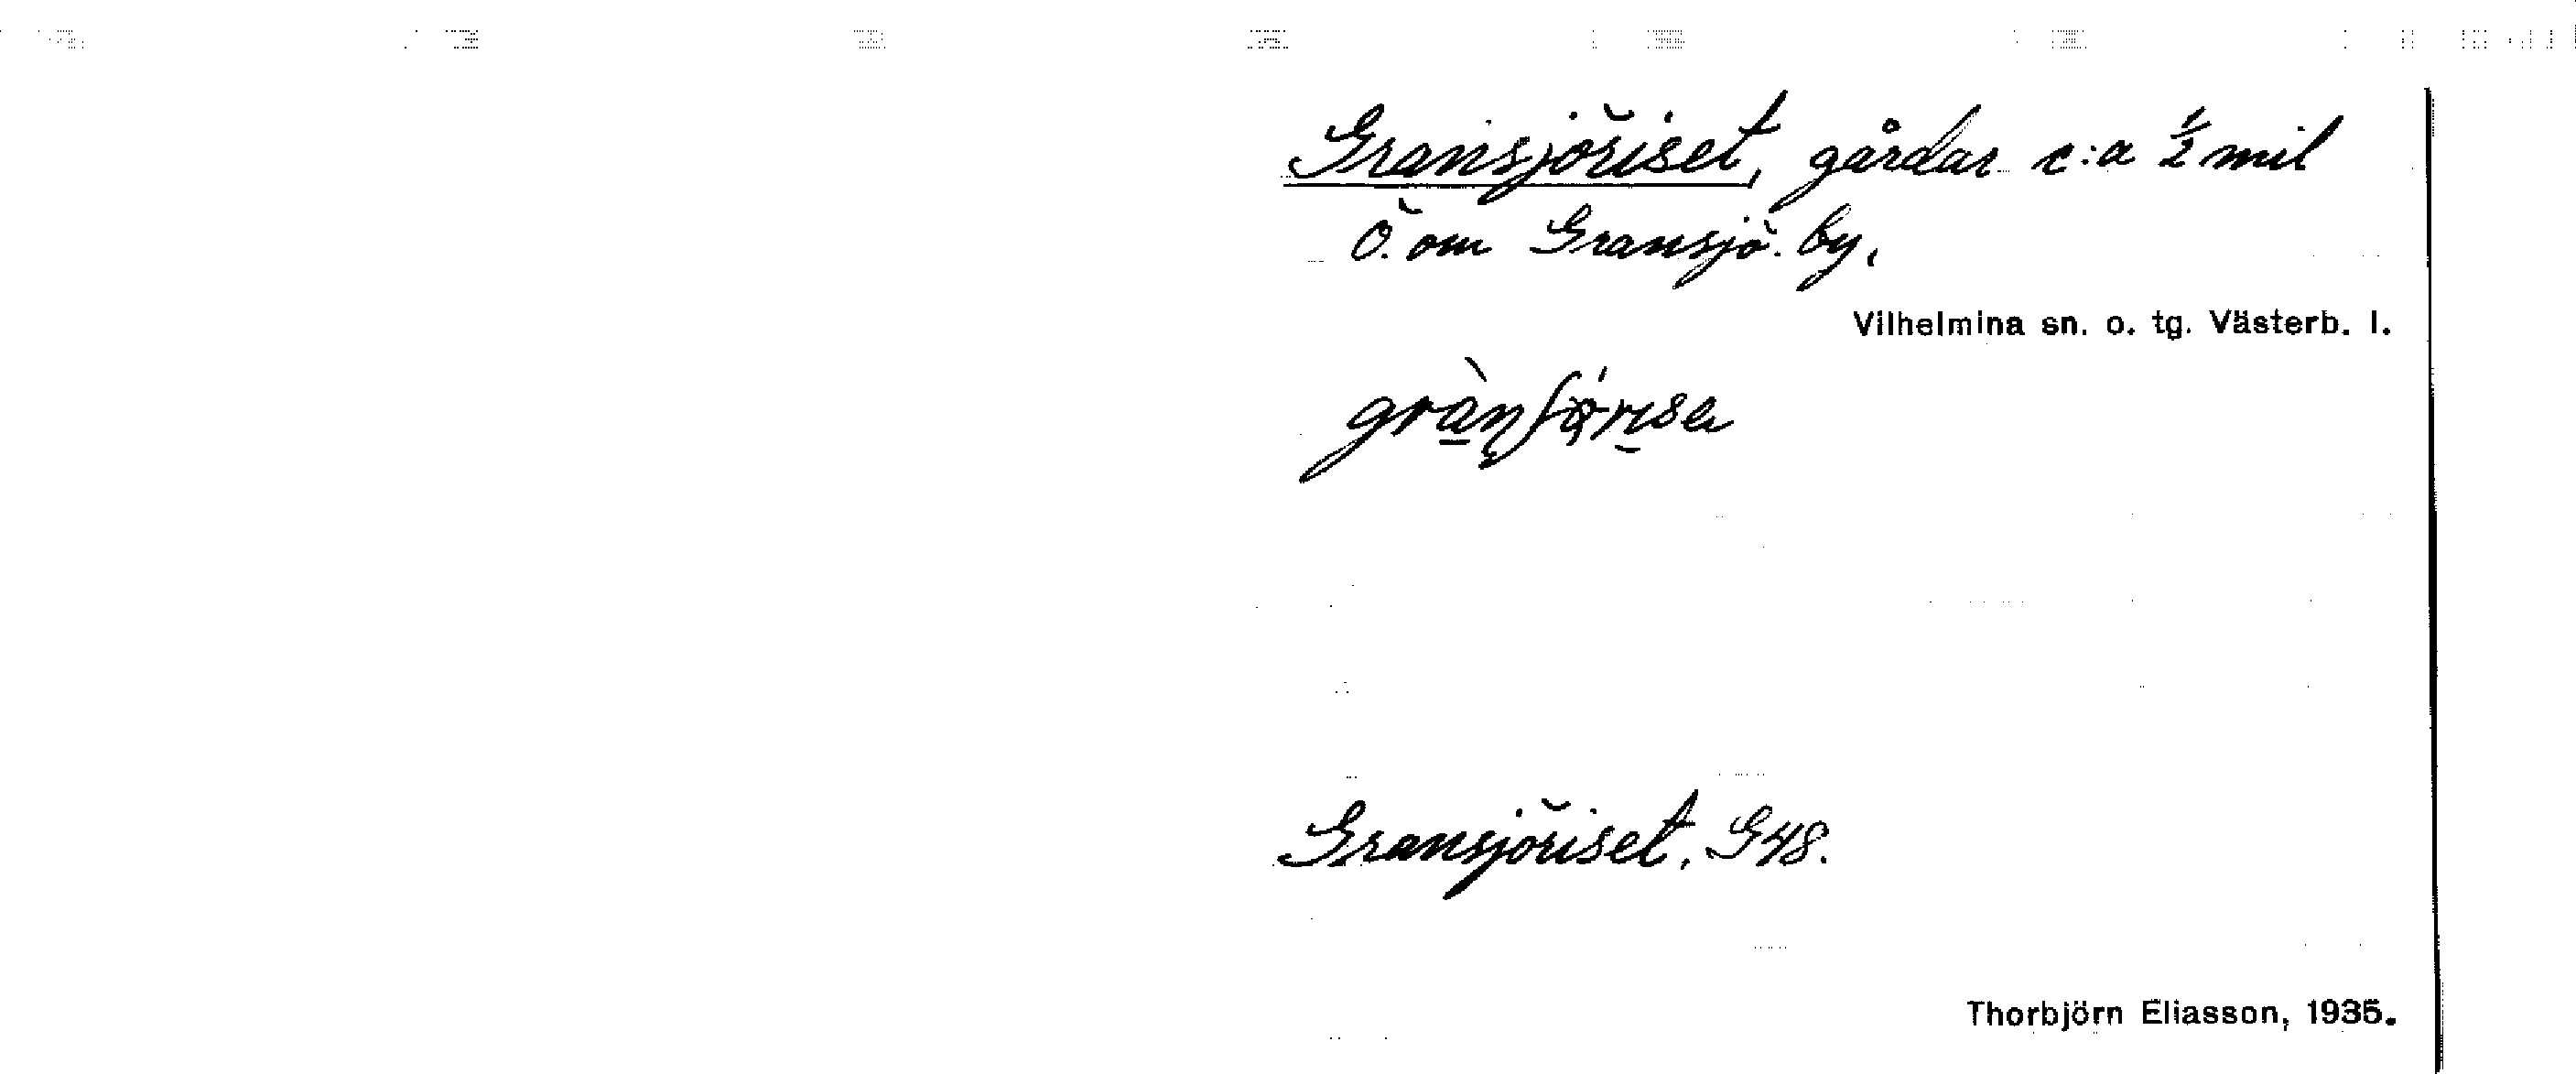 Gransjöriset, gårdar c:a ½ mil
Ö. om Gransjö by.
Vilhelmina sn. o. tg. Västerb. l.
Gransjöriset, G48.
Thorbjörn Eliasson, 1935.